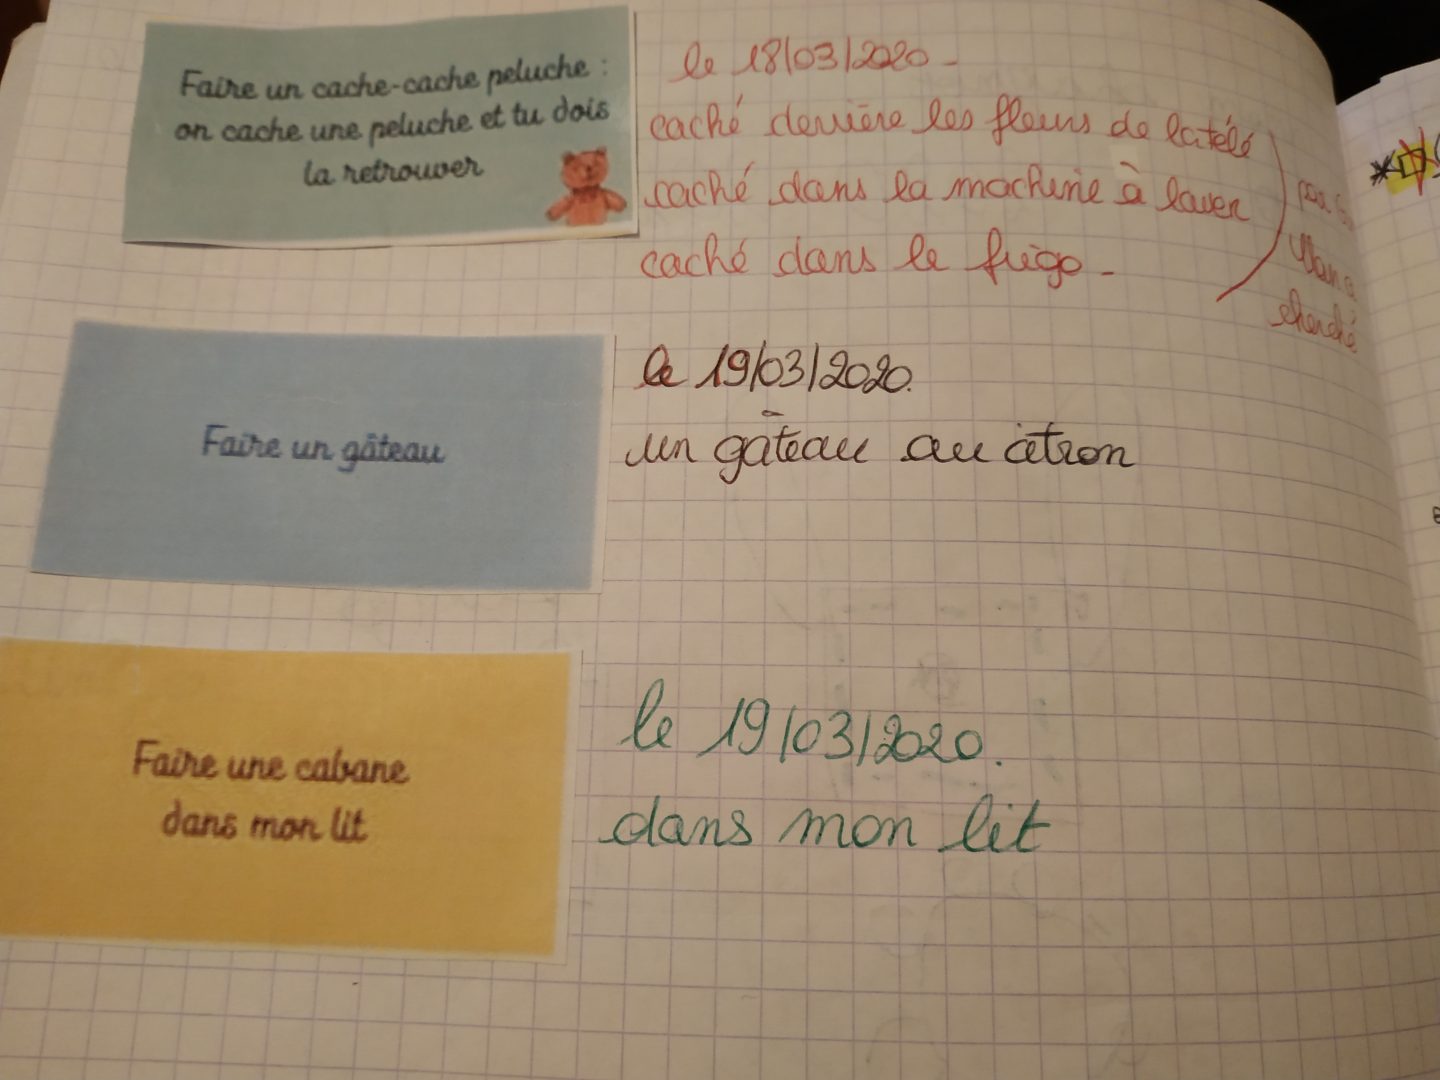 Faire un cache-cache peluche :
on cache une peluche et tu dois
la retrouver
le 18/03/2020 -
caché derrière les fleurs de la télé
caché dans la machine à laver
caché dans le frigo -
cherché
Faire un gâteau
le 19/03/2020.
un gâteau au citron
Faire une cabane
dans mon lit
le 19/03/2020.
dans mon lit